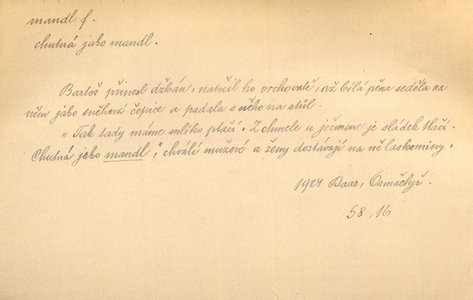 mandl f.
chutná jako mandl.
Bartoš přinesl džbán, natočil ho vrchovatě, až bílá pěna seděla na
něm jako sněhová čepice a padala s něho na stůl.
„Tak tady máme mlíko ptačí. Z chmele a ječmene je sládek tlačí.
Chutná jako mandl," chválí mužové a ženy dostávají na ně laskominy.
1924 Baar, Osmačtyř.
58, 16